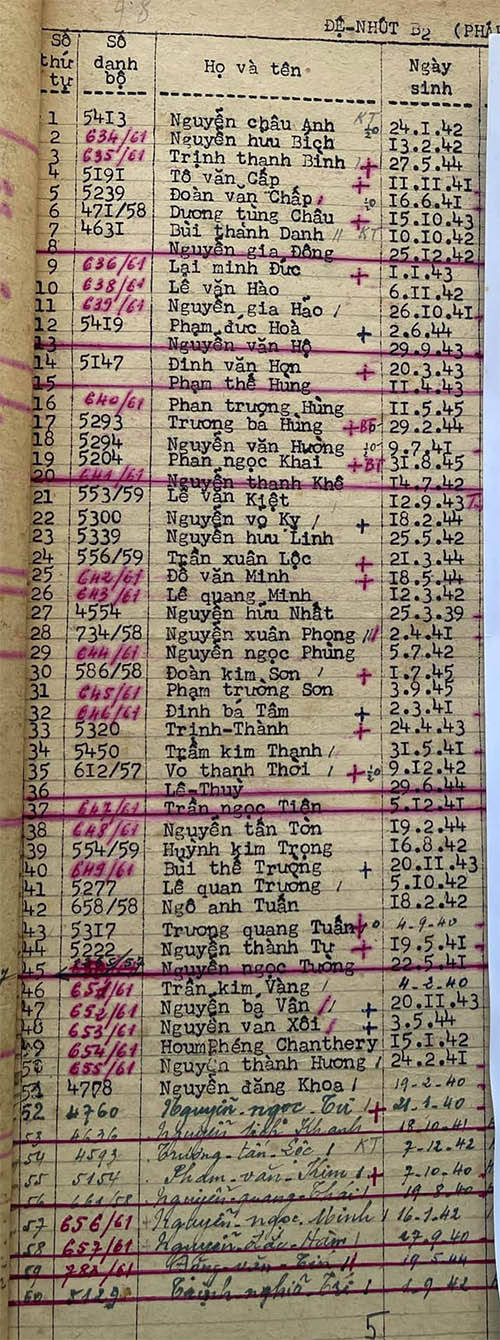 ĐỆ-NHÚT B2 (PHÁ
Số thứ tự Số danh bộ Họ và tên Ngày sinh
1 5413 Nguyễn châu Anh KT 24.I.42
2 634/61 Nguyễn hưu Bích 13.2.42
3 635/61 Trịnh thanh Bình 27.5.44
4 5191 Tô văn Cấp + II.II.41
5 5239 Đoàn văn Chấp 16.6.41
6 471/58 Dương tùng Châu + 15.10.43
7 4631 Bùi thanh Danh KT 10.10.42
8 Nguyễn gia Đông 25.12.42
9 636/61 Lại minh Đức + I.I.43
10 638/61 Lê văn Hào 6.II.42
11 639/61 Nguyễn gia Hảo 26.10.41
12 5419 Phạm đức Hoà + 2.6.44
13 Nguyễn văn Hộ 29.9.43
14 5147 Đinh văn Hơn + 20.3.43
15 Phạm thế Hùng II.4.43
16 640/61 Phan trương Hùng II.5.45
17 5293 Trương bá Hùng + 29.2.44
18 5294 Nguyễn văn Hường 9.7.41
19 5204 Phan ngọc Khai +BT 31.8.45
20 641/61 Nguyễn thanh Khê 14.7.42
21 553/59 Lê văn Kiệt 12.9.43
22 5300 Nguyễn vọ Kỵ + 18.2.44
23 5339 Nguyễn hưu Linh 25.5.42
24 556/59 Trần xuân Lộc + 21.3.44
25 642/61 Đỗ văn Minh + 18.5.44
26 643/61 Lê quang Minh 12.3.42
27 4554 Nguyễn hữu Nhất 25.3.39
28 734/58 Nguyễn xuân Phong 2.4.41
29 644/61 Nguyễn ngọc Phùng 5.7.42
30 586/58 Đoàn kim Sơn + I.7.45
31 645/61 Phạm trường Sơn 3.9.45
32 646/61 Đinh bá Tâm + 2.3.41
33 5320 Trịnh-Thành + 24.4.43
34 5450 Trầm kim Thạnh 31.5.41
35 612/57 Vo thanh Thời + 9.12.42
36 Lê-Thuỳ 29.6.44
37 647/61 Trần ngọc Tiên 5.12.41
38 648/61 Nguyễn tấn Tòn 19.2.44
39 554/59 Huỳnh kim Trọng 16.8.42
40 649/61 Bùi thế Trường + 20.II.43
41 5277 Lê quan Trương 5.10.42
42 658/58 Ngô anh Tuấn 18.2.42
43 5317 Trương quang Tuấn 4-9-40
44 5222 Nguyễn thành Tư + 19.5.41
45 Nguyễn ngọc Tường 22.5.41
46 651/61 Trần kim Vàng 4-2-40
47 652/61 Nguyễn bá Vân + 20.II.43
48 653/61 Nguyễn van Xôi + 3.5.44
49 654/61 Houmphéng Chanthery 15.I.42
50 655/61 Nguyễn thành Hương 24.2.41
51 4778 Nguyễn đăng Khoa 19-2-40
52 4760 Nguyễn-ngọc-Tư + 21-1-40
53 4636 Khanh 18-10-41
54 4593 Trương-tấn-Lộc KT 7-12-42
55 5154 Phạm-văn-Tiêm + 7-10-40
56 661/58 Nguyễn-quang-Thái 19-8-40
57 656/61 Nguyễn-ngọc-Minh 16-1-42
58 657/61 Nguyễn 27-9-40
59 783/61 Đặng-văn-Tin 19-5-44
60 Trịnh nghĩa 1-9-42
5